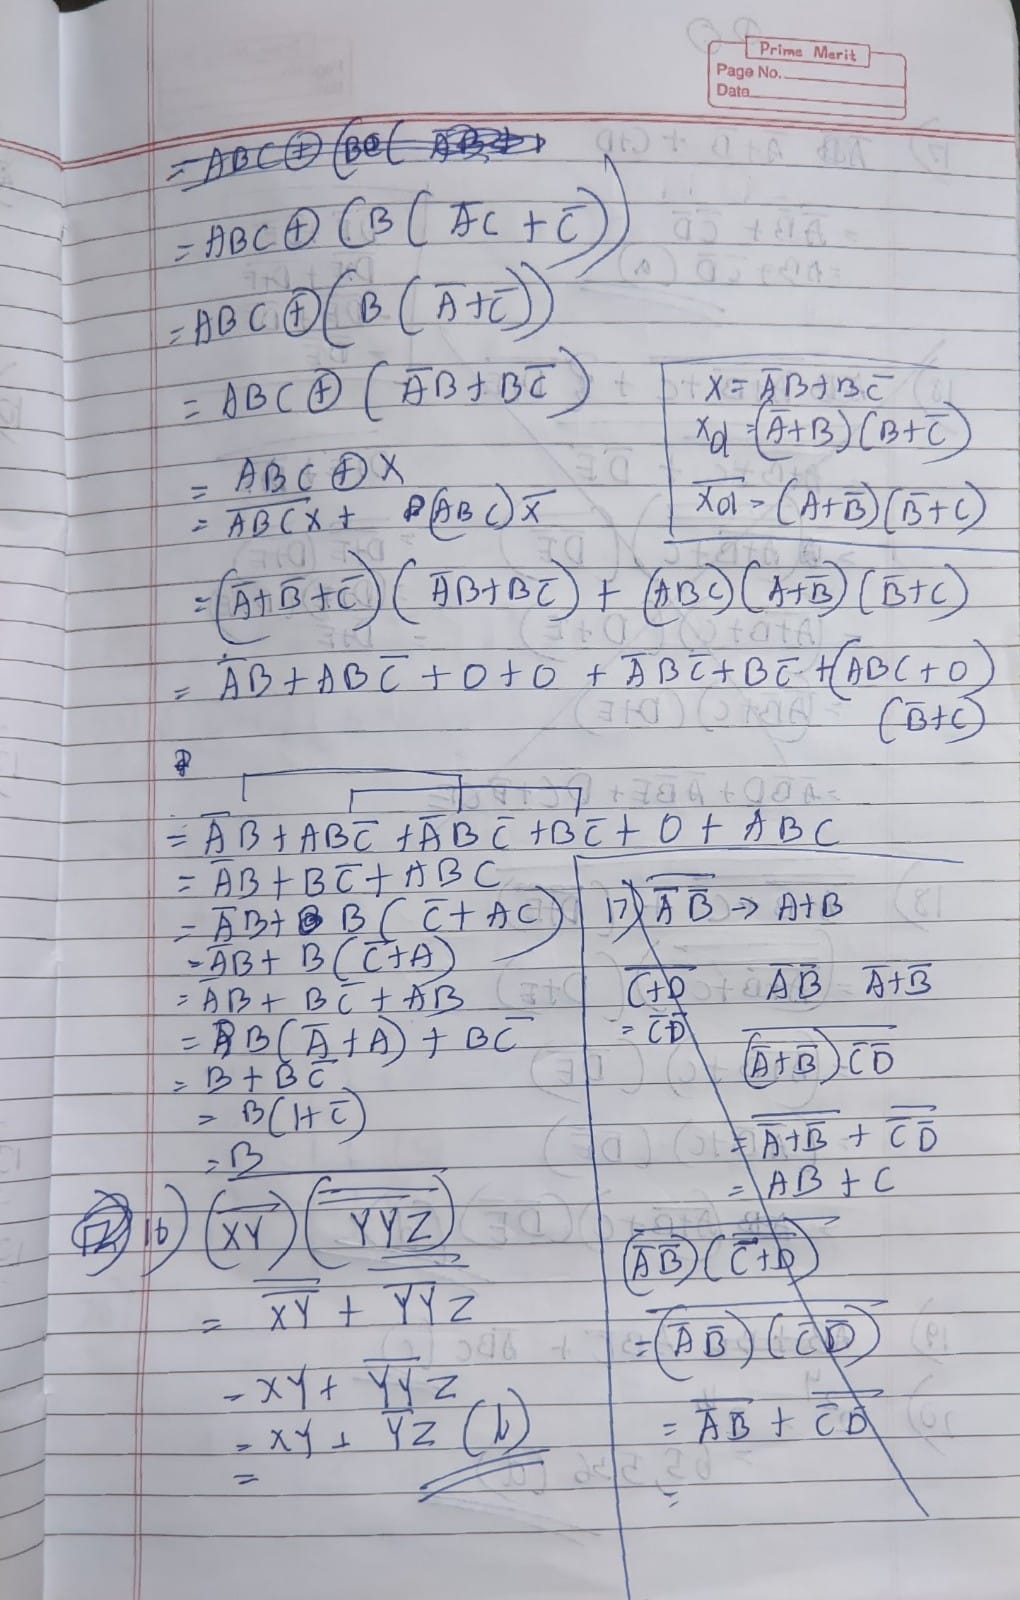 Prime Merit
Page No.
Data
= ABC ⊕ (B
= ABC ⊕ (B(A̅C + C̅))
= ABC ⊕ (B(A̅+C̅))
= ABC ⊕ (A̅B+BC̅)
= ABC ⊕ X
= \overline{ABC}X + (ABC)X̅
X = A̅B+BC̅
Xd = (A̅+B)(B+C̅)
\overline{Xd} = (A+B̅)(B̅+C)
= (A̅+B̅+C̅)(A̅B+BC̅) + (ABC)(A+B̅)(B̅+C)
= A̅B+ABC̅ +0+0 + A̅BC̅+BC̅ +(ABC+0)
(B̅+C)
= A̅B+ABC̅ +A̅BC̅ +BC̅ + 0 + ABC
= A̅B+BC̅+ABC
= A̅B+B(C̅+AC)
= A̅B+ B(C̅+A)
= A̅B+ BC̅ + AB
= B(A̅+A) + BC̅
= B + BC̅
= B(1+C̅)
= B
16) (\overline{XY})(\overline{\overline{YYZ}})
= \overline{\overline{XY}} + \overline{YY}Z
= XY + \overline{YY}Z
= XY + Y̅Z (b)
=
17) \overline{A̅B̅} → A+B
\overline{C+D} \overline{AB} A̅+B̅
= C̅D̅
\overline{(A̅+B̅)C̅D̅}
= \overline{A̅+B̅} + \overline{C̅D̅}
= AB + C
\overline{(A̅B̅)(\overline{C+D})}
= \overline{(A̅B̅)(C̅D̅)}
= \overline{A̅B̅} + \overline{C̅D̅}
=